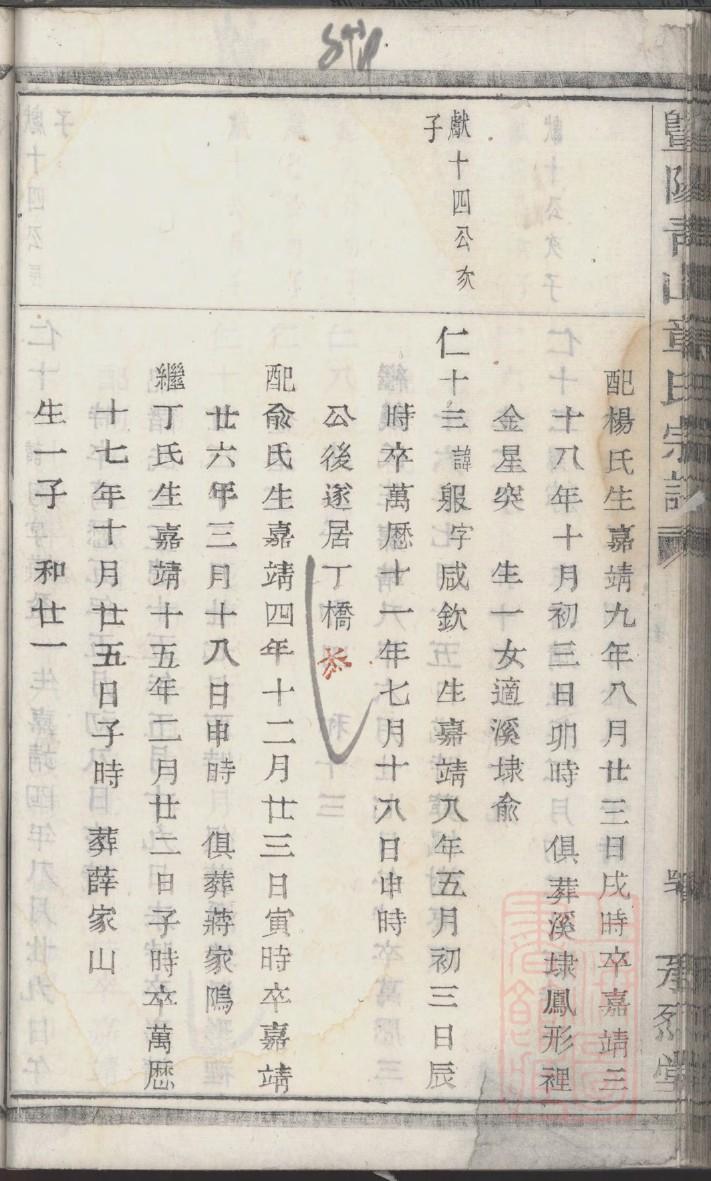 暨陽青山章氏宗譜
獻十四公次
子
配楊氏生嘉靖九年八月廿三日戌時卒嘉靖三
十八年十月初三日卯時　俱葬溪埭鳳形裡
金星突　生一女適溪埭俞
仁十三諱躬字咸欽　生嘉靖八年五月初三日辰
時卒萬曆十一年七月十八日申時
公後遂居丁橋
配俞氏生嘉靖四年十二月廿三日寅時卒嘉靖
廿六年三月十八日申時　俱葬蔣家隖
繼丁氏生嘉靖十五年二月廿二日子時卒萬曆
十七年十月廿五日子時　葬薛家山
生一子　和廿一